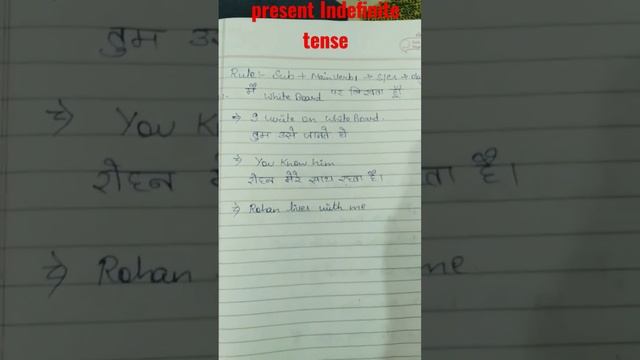 present Indefinite
tense
Rule:- Sub + Main verb1 + s/es +
मैं White Board पर लिखता हूँ।
⇒ I write on White Board.
तुम उसे जानते हो
⇒ You know him
रोहन मेरे साथ रहता है।
⇒ Rohan lives with me